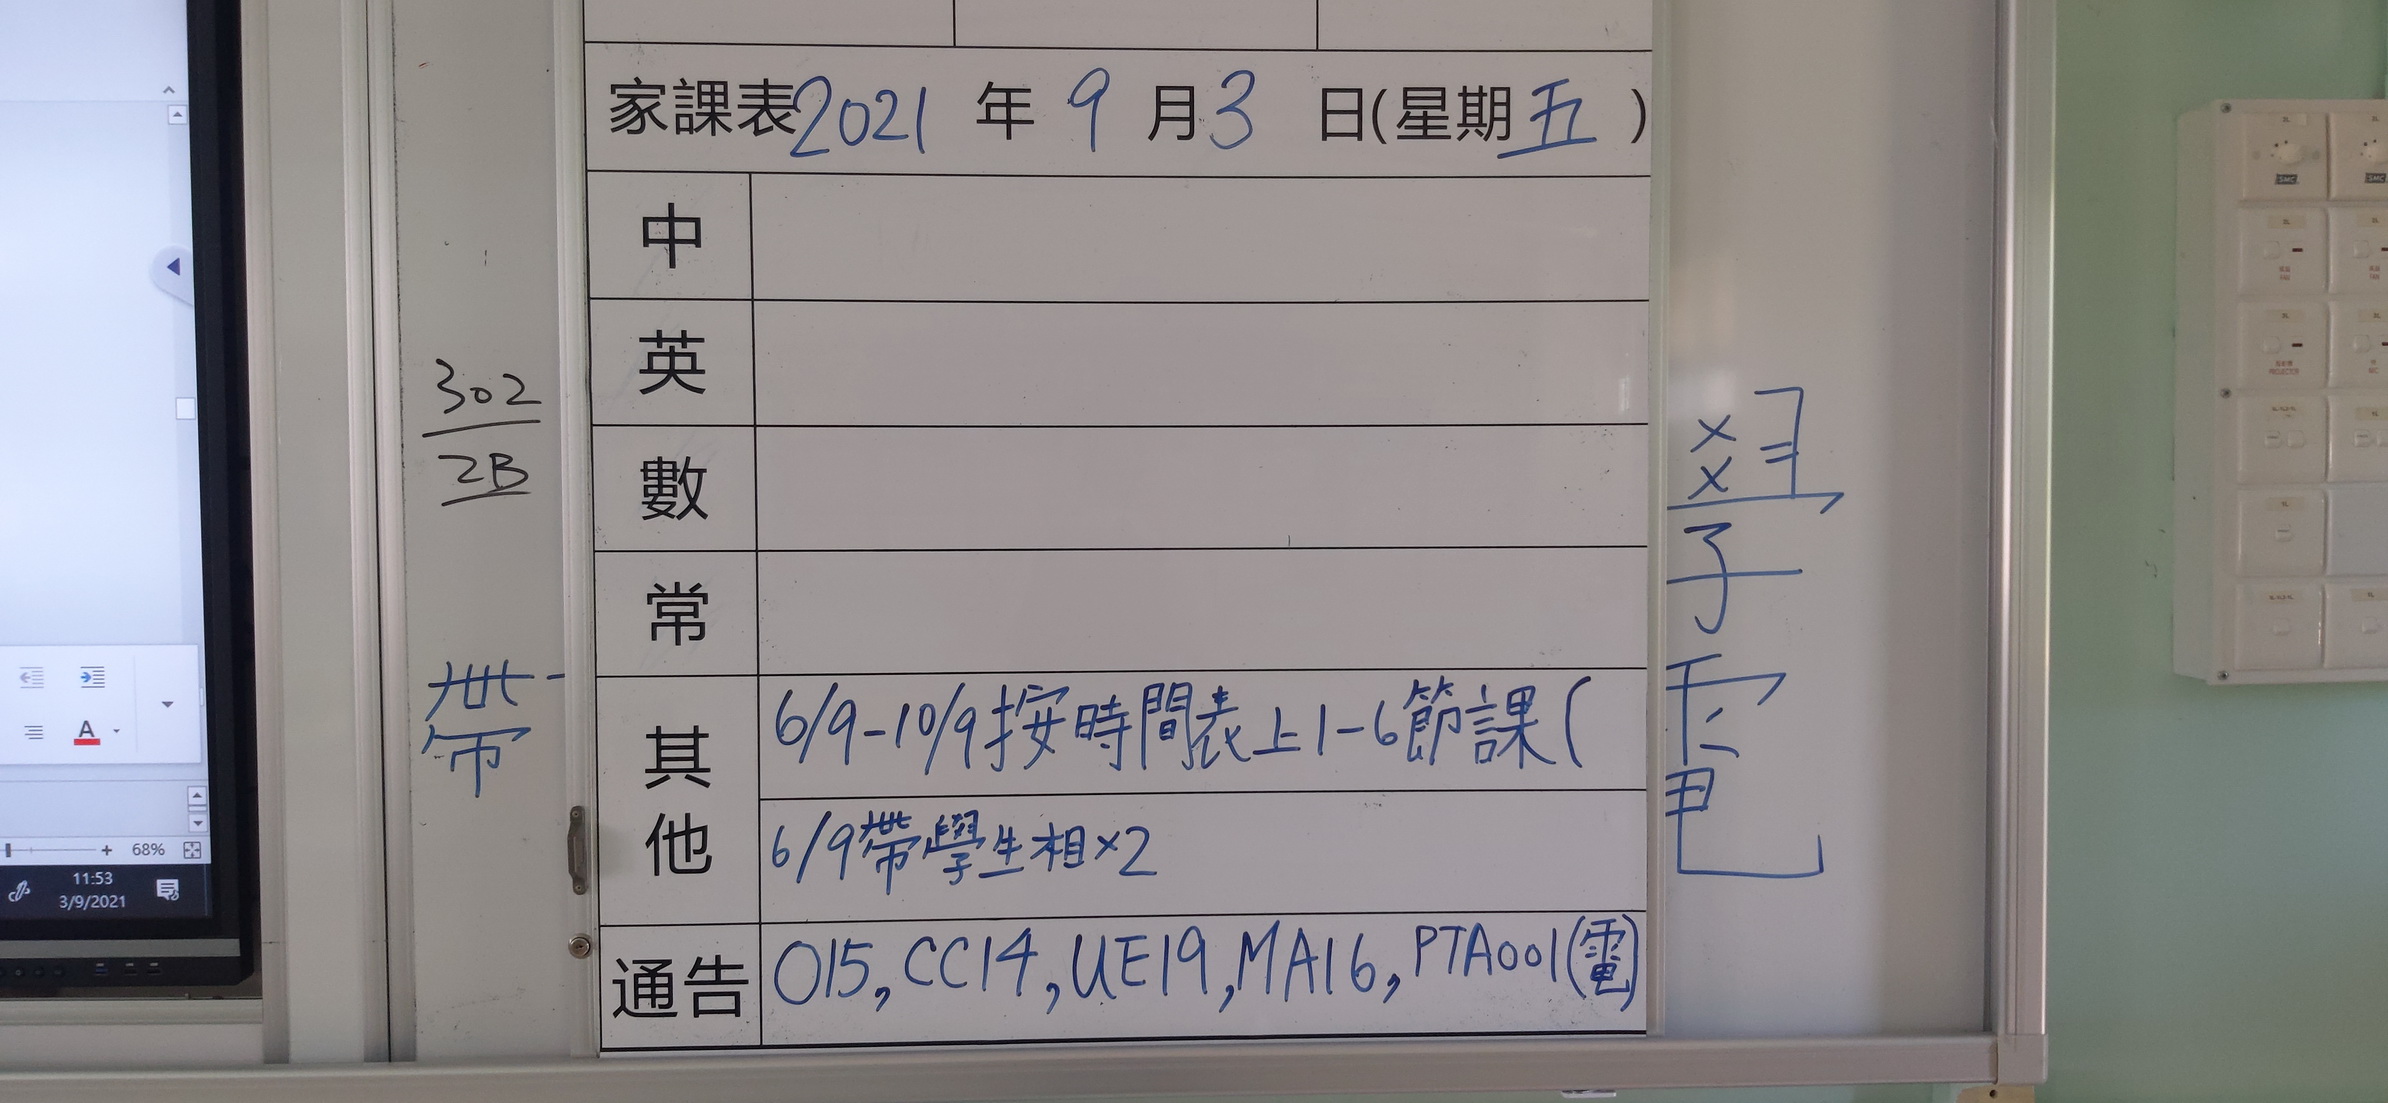 家課表2021 年 9 月 3 日(星期五 )
中
英
數
常
其他
6/9-10/9按時間表上1-6節課(
6/9帶學生相×2
通告 015, CC14, UE19, MA16, PTA001(電)
302
2B
帶
68%
11:53
3/9/2021
A
SMC
SMC
PROJECTOR